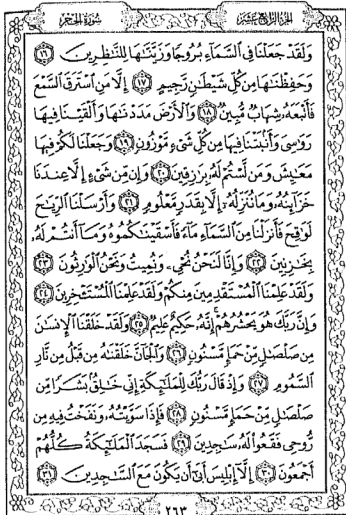 الجزء الرابع عشر سورة الحجر
وَلَقَدْ جَعَلْنَا فِي السَّمَآءِ بُرُوجًا وَزَيَّنَّٰهَا لِلنَّٰظِرِينَ ١٦
وَحَفِظْنَٰهَا مِن كُلِّ شَيْطَٰنٍ رَّجِيمٍ ١٧ إِلَّا مَنِ ٱسْتَرَقَ ٱلسَّمْعَ
فَأَتْبَعَهُۥ شِهَابٌ مُّبِينٌ ١٨ وَٱلْأَرْضَ مَدَدْنَٰهَا وَأَلْقَيْنَا فِيهَا
رَوَٰسِيَ وَأَنۢبَتْنَا فِيهَا مِن كُلِّ شَيْءٍ مَّوْزُونٍ ١٩ وَجَعَلْنَا لَكُمْ فِيهَا
مَعَٰيِشَ وَمَن لَّسْتُمْ لَهُۥ بِرَٰزِقِينَ ٢٠ وَإِن مِّن شَيْءٍ إِلَّا عِندَنَا
خَزَآئِنُهُۥ وَمَا نُنَزِّلُهُۥٓ إِلَّا بِقَدَرٍ مَّعْلُومٍ ٢١ وَأَرْسَلْنَا ٱلرِّيَٰحَ
لَوَٰقِحَ فَأَنزَلْنَا مِنَ ٱلسَّمَآءِ مَآءً فَأَسْقَيْنَٰكُمُوهُ وَمَآ أَنتُمْ لَهُۥ
بِخَٰزِنِينَ ٢٢ وَإِنَّا لَنَحْنُ نُحْيِۦ وَنُمِيتُ وَنَحْنُ ٱلْوَٰرِثُونَ ٢٣
وَلَقَدْ عَلِمْنَا ٱلْمُسْتَقْدِمِينَ مِنكُمْ وَلَقَدْ عَلِمْنَا ٱلْمُسْتَـْٔخِرِينَ ٢٤
وَإِنَّ رَبَّكَ هُوَ يَحْشُرُهُمْ إِنَّهُۥ حَكِيمٌ عَلِيمٌ ٢٥ وَلَقَدْ خَلَقْنَا ٱلْإِنسَٰنَ
مِن صَلْصَٰلٍ مِّنْ حَمَإٍ مَّسْنُونٍ ٢٦ وَٱلْجَآنَّ خَلَقْنَٰهُ مِن قَبْلُ مِن نَّارِ
ٱلسَّمُومِ ٢٧ وَإِذْ قَالَ رَبُّكَ لِلْمَلَٰٓئِكَةِ إِنِّي خَٰلِقٌۢ بَشَرًا مِّن
صَلْصَٰلٍ مِّنْ حَمَإٍ مَّسْنُونٍ ٢٨ فَإِذَا سَوَّيْتُهُۥ وَنَفَخْتُ فِيهِ مِن
رُّوحِي فَقَعُوا۟ لَهُۥ سَٰجِدِينَ ٢٩ فَسَجَدَ ٱلْمَلَٰٓئِكَةُ كُلُّهُمْ
أَجْمَعُونَ ٣٠ إِلَّآ إِبْلِيسَ أَبَىٰٓ أَن يَكُونَ مَعَ ٱلسَّٰجِدِينَ ٣١
٢٦٣